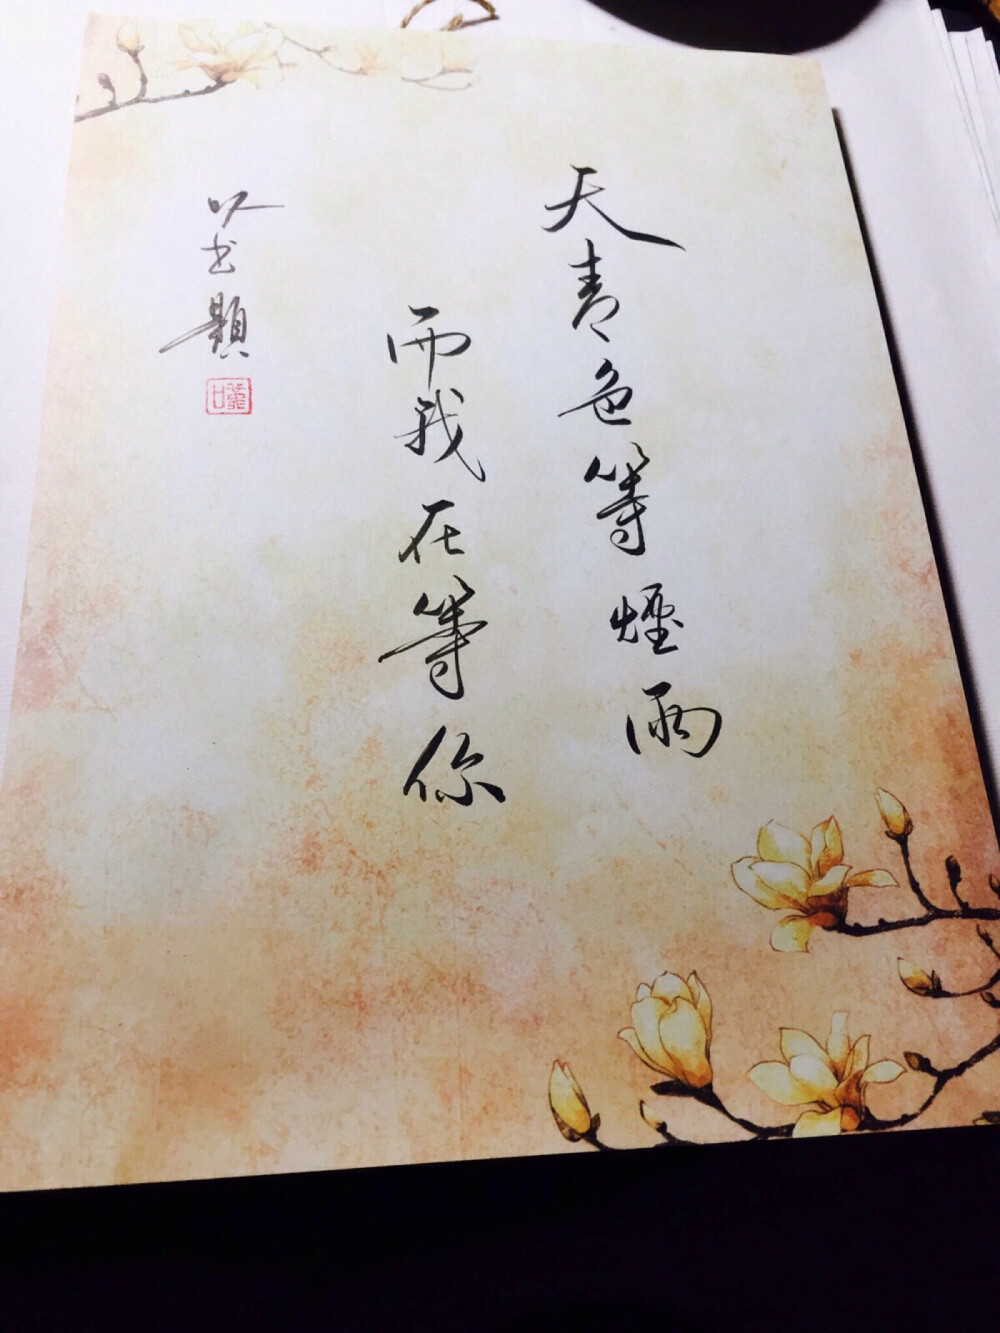 天青色等煙雨
而我在等你
以書題